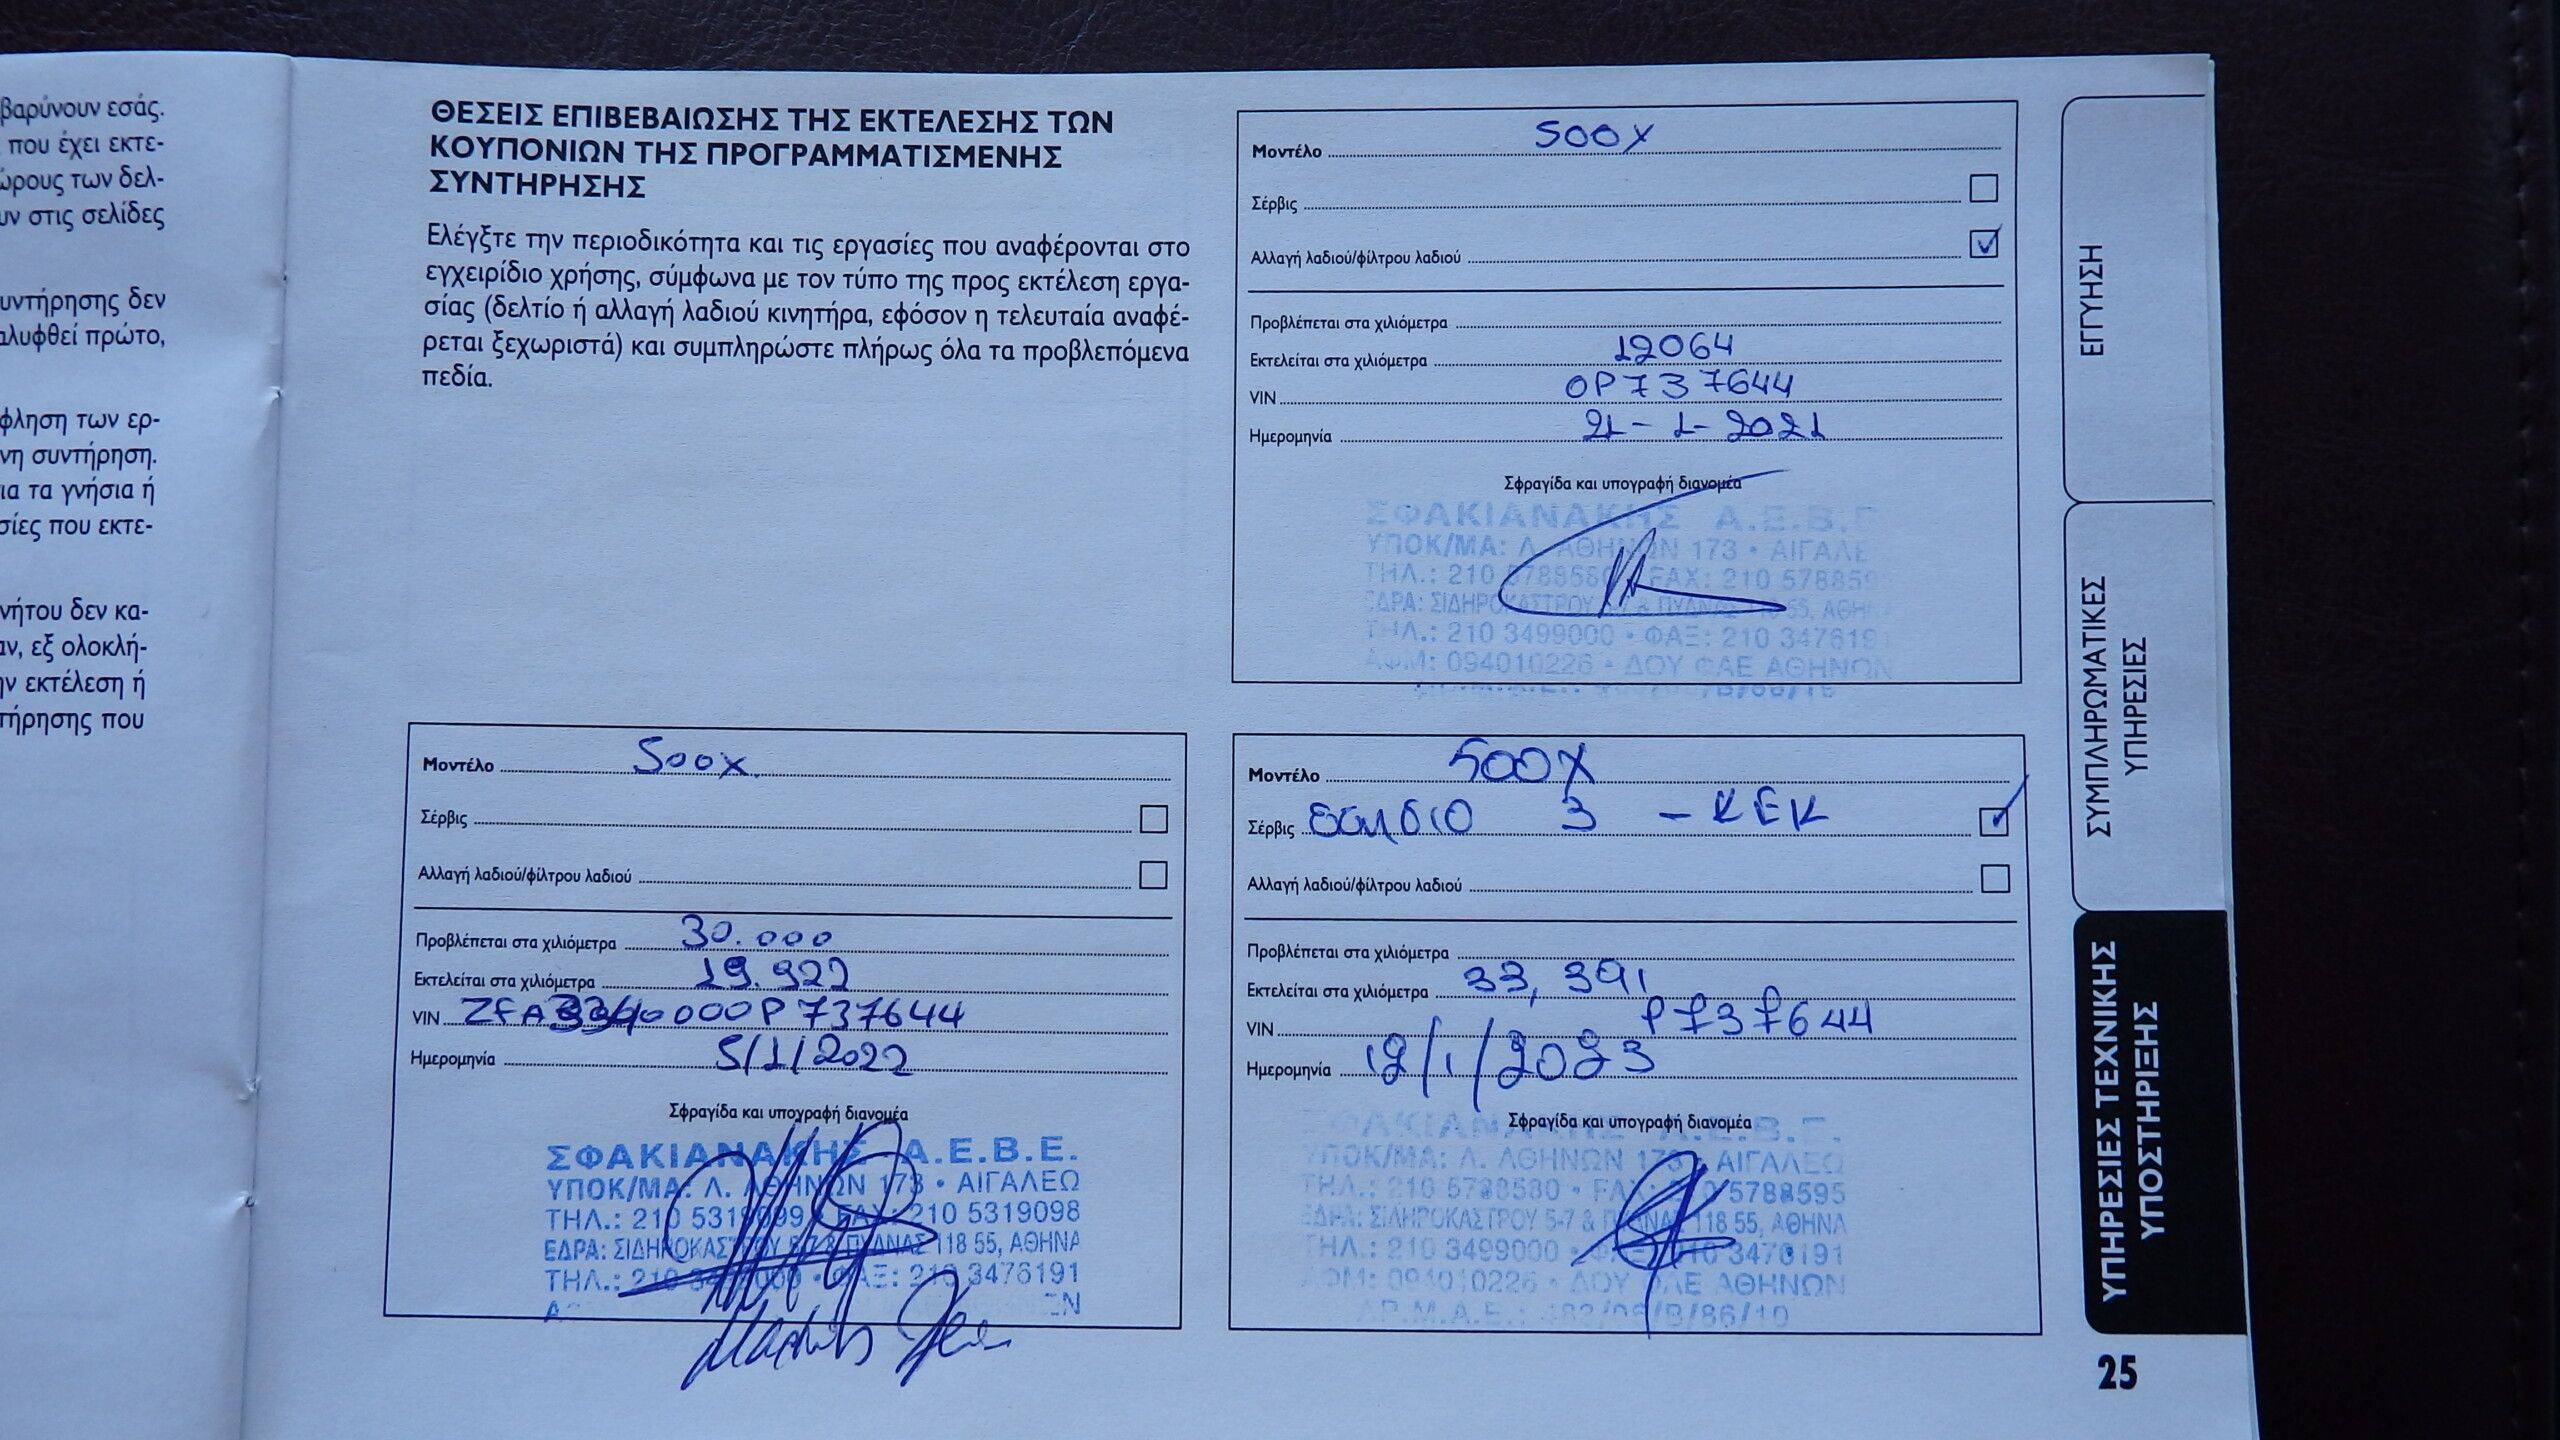 βαρύνουν εσάς.
που έχει εκτε-
ώρους των δελ-
υν στις σελίδες
υντήρησης δεν
αλυφθεί πρώτο,
φληση των ερ-
νη συντήρηση.
ια τα γνήσια ή
σίες που εκτε-
νήτου δεν κα-
αν, εξ ολοκλή-
ην εκτέλεση ή
τήρησης που
ΘΕΣΕΙΣ ΕΠΙΒΕΒΑΙΩΣΗΣ ΤΗΣ ΕΚΤΕΛΕΣΗΣ ΤΩΝ
ΚΟΥΠΟΝΙΩΝ ΤΗΣ ΠΡΟΓΡΑΜΜΑΤΙΣΜΕΝΗΣ
ΣΥΝΤΗΡΗΣΗΣ
Ελέγξτε την περιοδικότητα και τις εργασίες που αναφέρονται στο
εγχειρίδιο χρήσης, σύμφωνα με τον τύπο της προς εκτέλεση εργα-
σίας (δελτίο ή αλλαγή λαδιού κινητήρα, εφόσον η τελευταία αναφέ-
ρεται ξεχωριστά) και συμπληρώστε πλήρως όλα τα προβλεπόμενα
πεδία.
Μοντέλο 500X
Σέρβις
Αλλαγή λαδιού/φίλτρου λαδιού
Προβλέπεται στα χιλιόμετρα
Εκτελείται στα χιλιόμετρα 12064
VIN 0P737644
Ημερομηνία 21-1-2021
Σφραγίδα και υπογραφή διανομέα
ΣΦΑΚΙΑΝΑΚΗΣ Α.Ε.Β.Ε
ΥΠΟΚ/ΜΑ: Λ. ΑΘΗΝΩΝ 173 • ΑΙΓΑΛΕ
ΤΗΛ.: 210 5788580 FAX: 210 578859
ΕΔΡΑ: ΣΙΔΗΡΟΚΑΣΤΡΟΥ 5-7 & ΠΥΔΝΑΣ 118 55, ΑΘΗΝΑ
ΤΗΛ.: 210 3499000 • ΦΑΞ: 210 347619
ΑΦΜ: 094010226 • ΔΟΥ ΦΑΕ ΑΘΗΝΩΝ
Μοντέλο 500x
Σέρβις
Αλλαγή λαδιού/φίλτρου λαδιού
Προβλέπεται στα χιλιόμετρα 30.000
Εκτελείται στα χιλιόμετρα 19.922
VIN ZFA3340000P737644
Ημερομηνία 5/1/2022
Σφραγίδα και υπογραφή διανομέα
ΣΦΑΚΙΑΝΑΚΗΣ Α.Ε.Β.Ε.
ΥΠΟΚ/ΜΑ: Λ. ΑΘΗΝΩΝ 173 • ΑΙΓΑΛΕΩ
ΤΗΛ.: 210 5319099 • FAX: 210 5319098
ΕΔΡΑ: ΣΙΔΗΡΟΚΑΣΤΡΟΥ 5-7 & ΠΥΔΝΑΣ 118 55, ΑΘΗΝΑ
ΤΗΛ.: 210 3499000 • ΦΑΞ: 210 3476191
Μοντέλο 500X
Σέρβις 3 - KEK
Αλλαγή λαδιού/φίλτρου λαδιού
Προβλέπεται στα χιλιόμετρα
Εκτελείται στα χιλιόμετρα 33,391
VIN P737644
Ημερομηνία 12/1/2023
Σφραγίδα και υπογραφή διανομέα
ΣΦΑΚΙΑΝΑΚΗΣ Α.Ε.Β.Ε.
ΥΠΟΚ/ΜΑ: Λ. ΑΘΗΝΩΝ 173 • ΑΙΓΑΛΕΩ
ΤΗΛ.: 210 5788580 • FAX: 210 5788595
ΕΔΡΑ: ΣΙΔΗΡΟΚΑΣΤΡΟΥ 5-7 & ΠΥΔΝΑΣ 118 55, ΑΘΗΝΑ
ΤΗΛ.: 210 3499000 • ΦΑΞ: 210 3476191
ΑΦΜ: 094010226 • ΔΟΥ ΦΑΕ ΑΘΗΝΩΝ
ΑΡ.Μ.Α.Ε.: /Β/86/10
ΕΓΓΥΗΣΗ
ΣΥΜΠΛΗΡΩΜΑΤΙΚΕΣ
ΥΠΗΡΕΣΙΕΣ
ΥΠΗΡΕΣΙΕΣ ΤΕΧΝΙΚΗΣ
ΥΠΟΣΤΗΡΙΞΗΣ
25